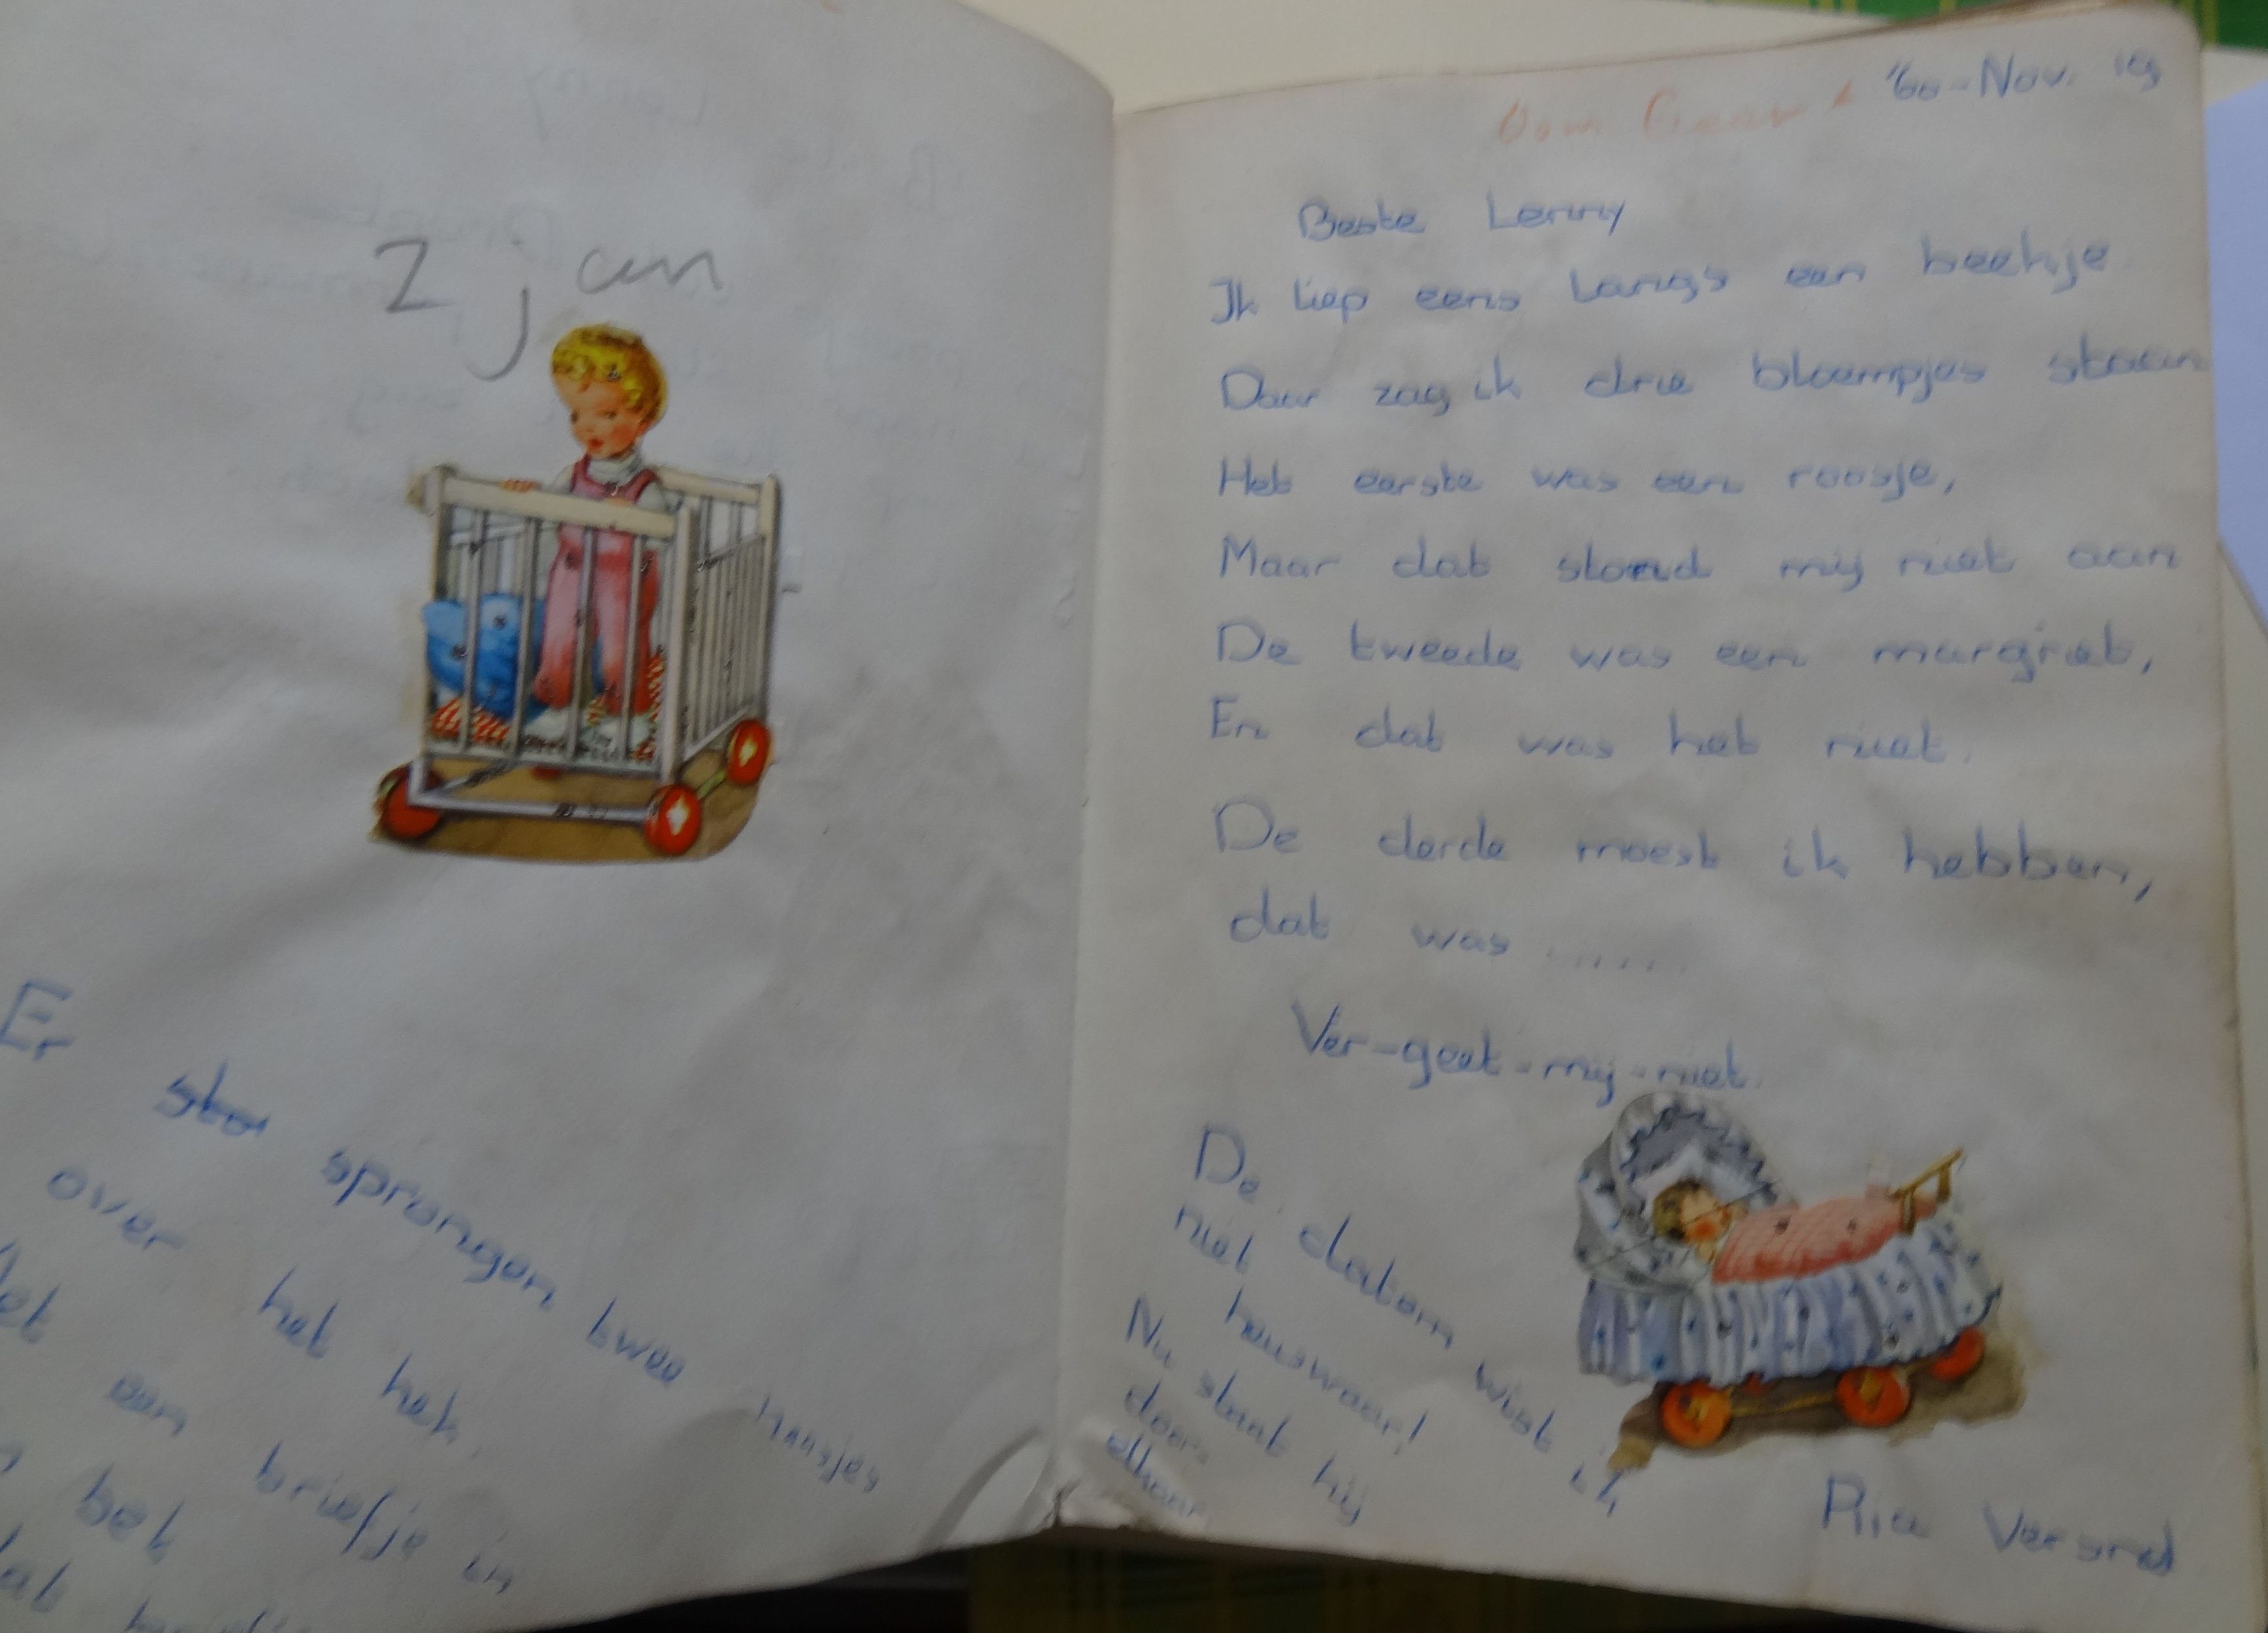 z jan
Er sto sprongen twee haasjes
over het hek.
een briefje in
bek
'60-Nov. 19
Beste Lenny
Ik liep eens langs een beekje
Daar zag ik drie bloempjes staan
Het eerste was een roosje,
Maar dat stond mij niet aan
De tweede was een margriet,
En dat was het niet.
De derde moest ik hebben,
dat was .......
Ver-geet-mij-niet.
De datom wist ik
niet heuswaar!
Nu staat hij
door
elkaar
Ria